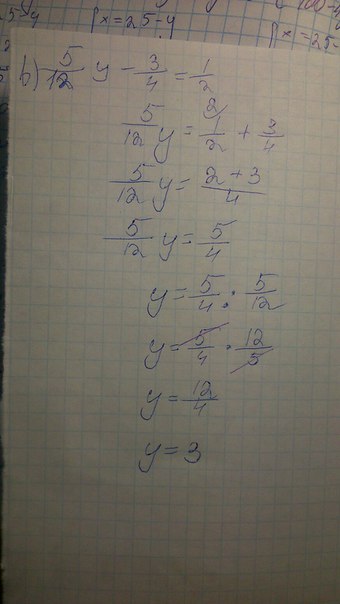 x=25-y
x=25-
b) 5/12 y - 3/4 = 1/2
5/12 y = 1/2 2 + 3/4
5/12 y = 2+3/4
5/12 y = 5/4
y = 5/4 : 5/12
y = 5/4 · 12/5
y = 12/4
y = 3